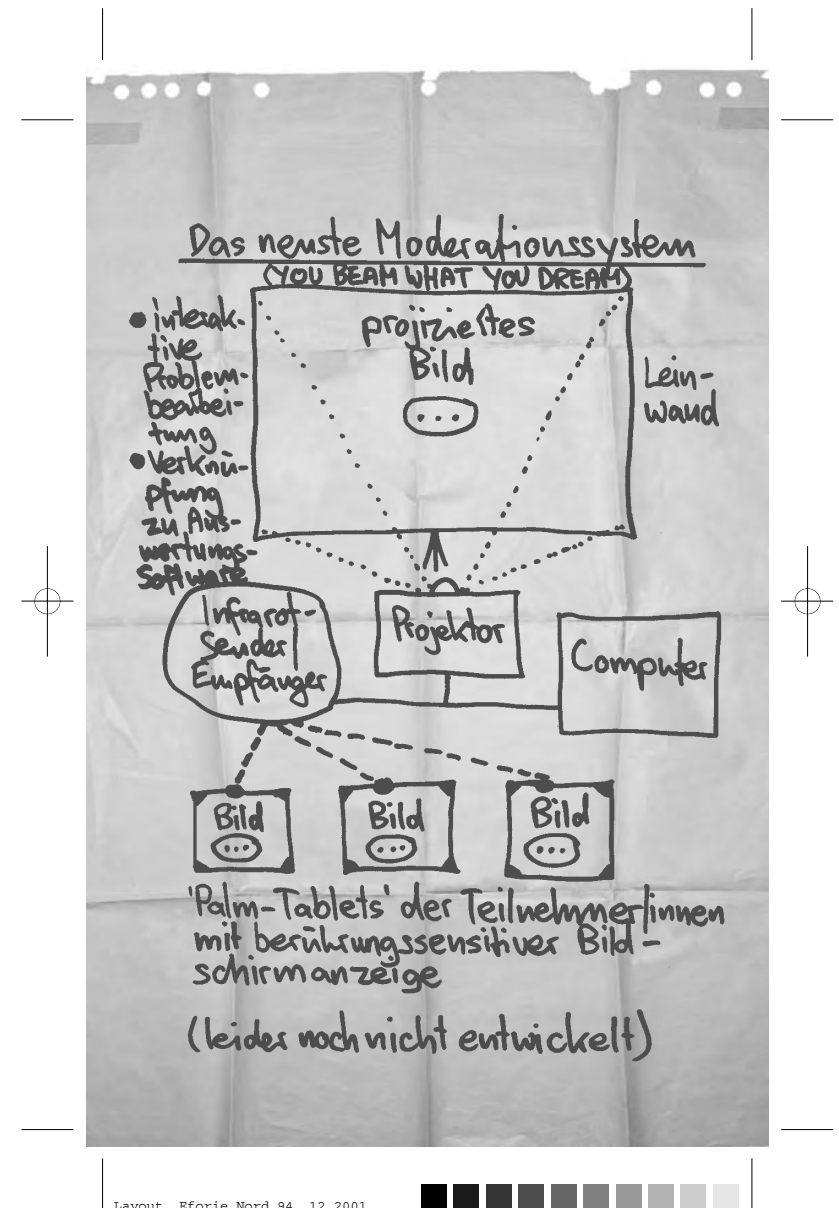 Das neuste Moderationssystem
(YOU BEAM WHAT YOU DREAM)
• interak-
tive
Problem-
bearbei-
tung
• Verknü-
pfung
zu Aus-
wertungs-
Software
projiziertes
Bild
...
Lein-
wand
Infrarot-
Sender/
Empfänger
Projektor
Computer
Bild
...
Bild
...
Bild
...
'Palm-Tablets' der Teilnehmer/innen
mit berührungssensitiver Bild-
schirmanzeige
(leider noch nicht entwickelt)
Layout Eforie Nord 94 12 2001